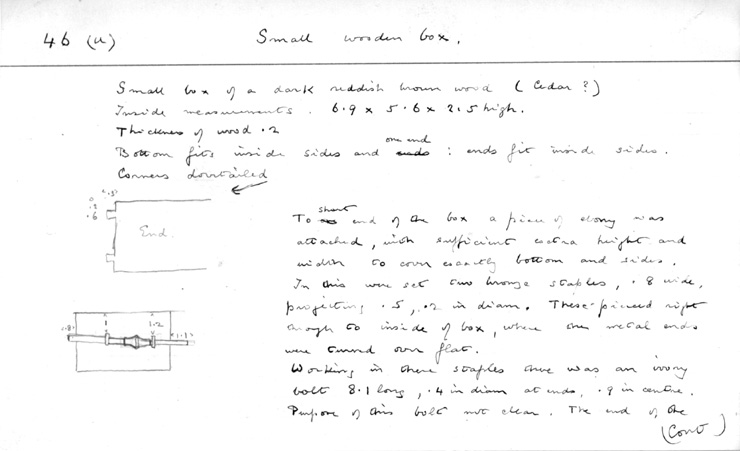 46 (u) Small wooden box.
Small box of a dark reddish brown wood (Cedar ?)
Inside measurements. 6.9 x 5.6 x 2.5 high.
Thickness of wood .2
Bottom fits inside sides and one end ends : ends fit inside sides.
Corners dovetailed
0 .2 .6 2.5
End.
To short end of the box a piece of ebony was
attached, with sufficient extra height and
width to cover exactly bottom and sides.
In this were set two bronze staples, .8 wide,
projecting .5, .2 in diam. These pierced right
through to inside of box, where the metal ends
were turned over flat.
Working in these staples there was an ivory
bolt 8.1 long, .4 in diam at ends, .9 in centre.
Purpose of this bolt not clear. The end of the
(Cont)
1.2